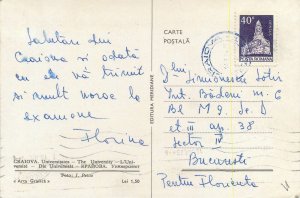 CARTE
POSTALĂ
40
POSTA ROMANA
Salutări din
Craiova și odată
cu ele vă trimit
și mult noroc la
examene
Florina
EDITURA MERIDIANE
Simionescu
Int. Bădeni n. 6
Bl M9 sc. D
et III ap. 38
Sector IV
București
Pentru Florența
CRAIOVA. Universitatea - The University - L'Uni-
versité - Die Universität - КРАЙОВА. Университет
Foto: J. Petru
« Arta Grafică »
Lei 1,50